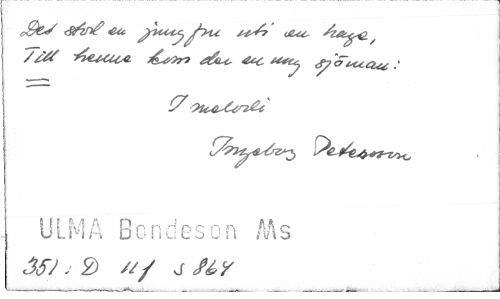 Det stod en jungfru uti en hage,
Till henne kom der en ung sjöman:
I melodi
Ingeborg Petersson
ULMA Bondeson Ms
351:D 11f s 864